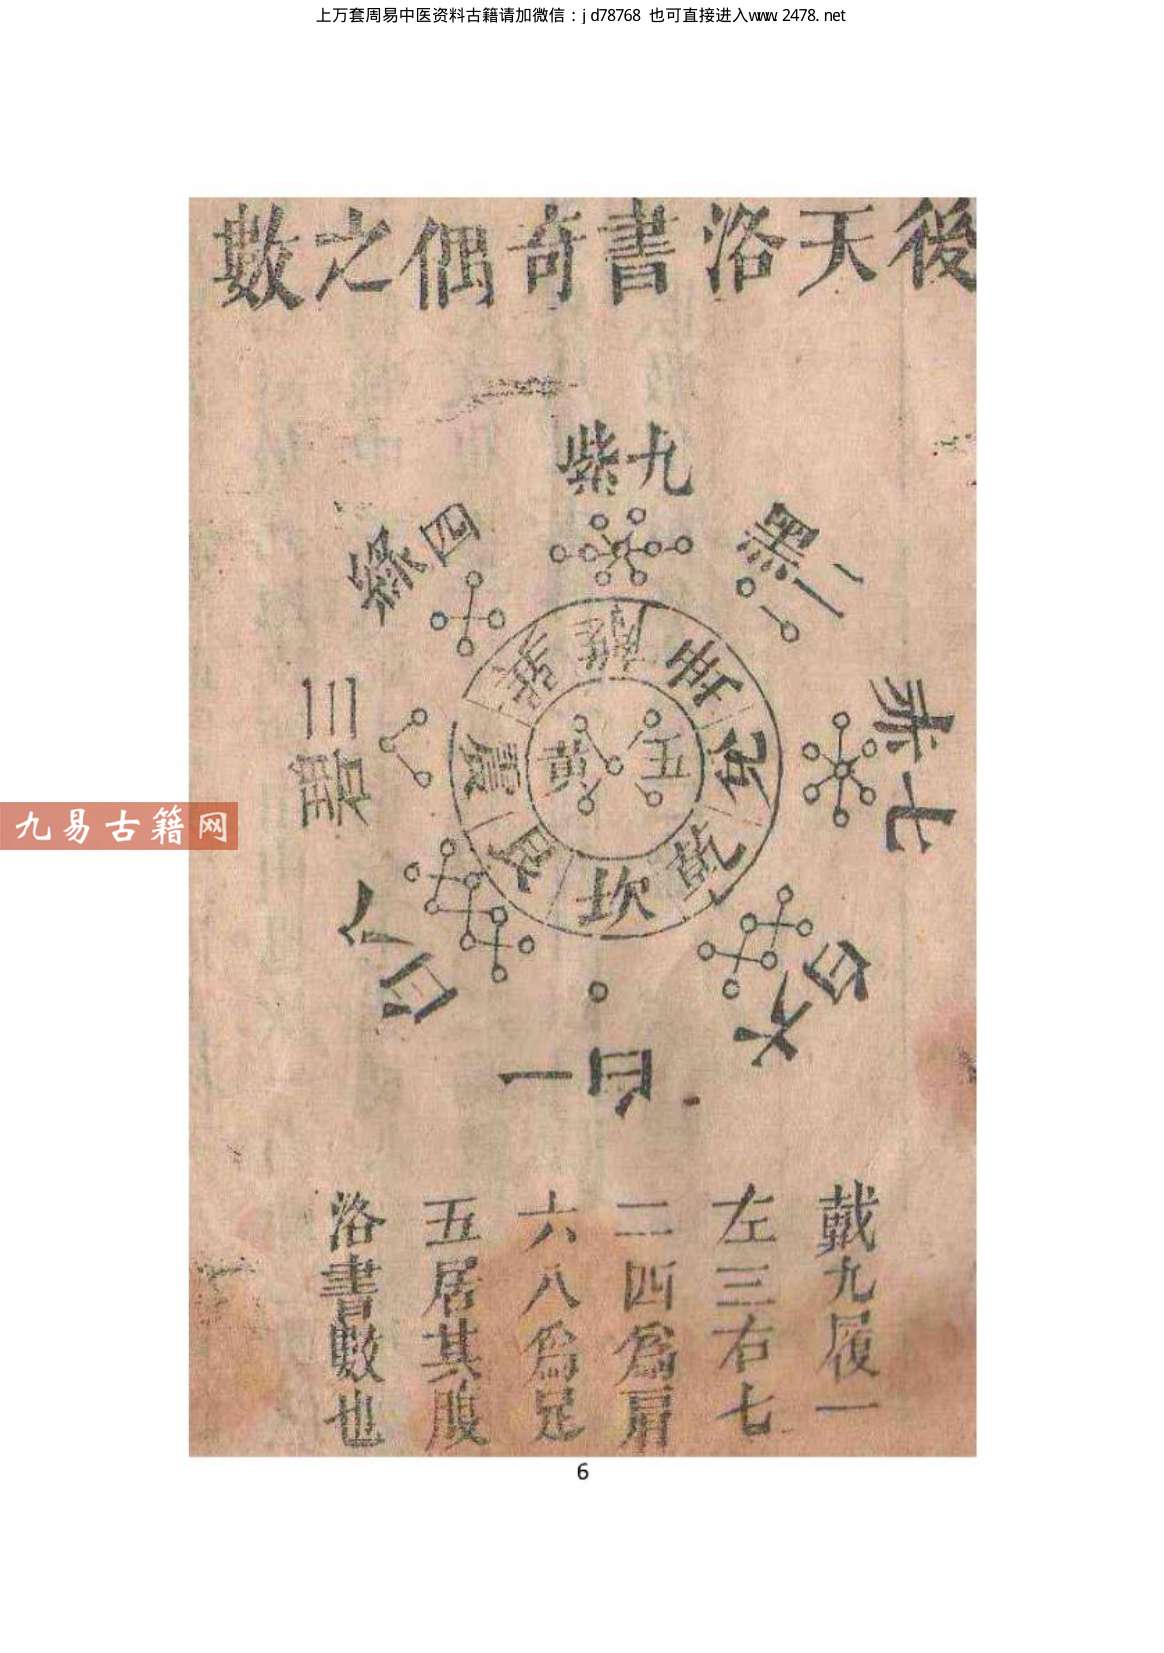 上万套周易中医资料古籍请加微信：jd78768 也可直接进入www.2478.net
後天洛書奇偶之數
九紫
四綠
二黑
三碧
赤七
五黃
離
坤
兌
乾
坎
艮
震
巽
八白
六白
一白
九易古籍网
戴九履一
左三右七
二四爲肩
六八爲足
五居其腹
洛書數也
6